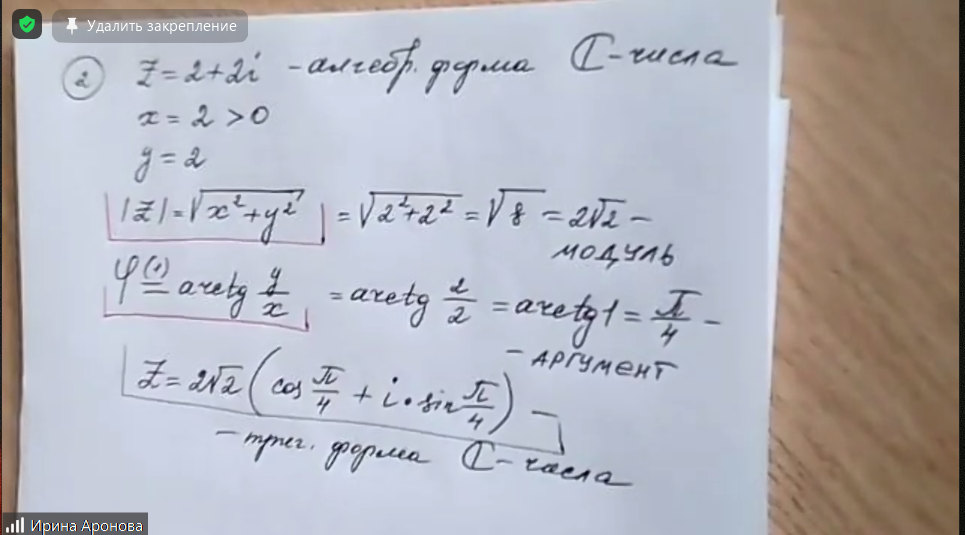 Удалить закрепление
② Z = 2 + 2i – алгебр. форма ℂ-числа
x = 2 > 0
y = 2
|Z| = √(x² + y²) = √(2² + 2²) = √8 = 2√2 –
модуль
φ (1)= arctg y/x = arctg 2/2 = arctg 1 = π/4 –
– аргумент
Z = 2√2 (cos π/4 + i · sin π/4) –
– триг. форма ℂ-числа
Ирина Аронова